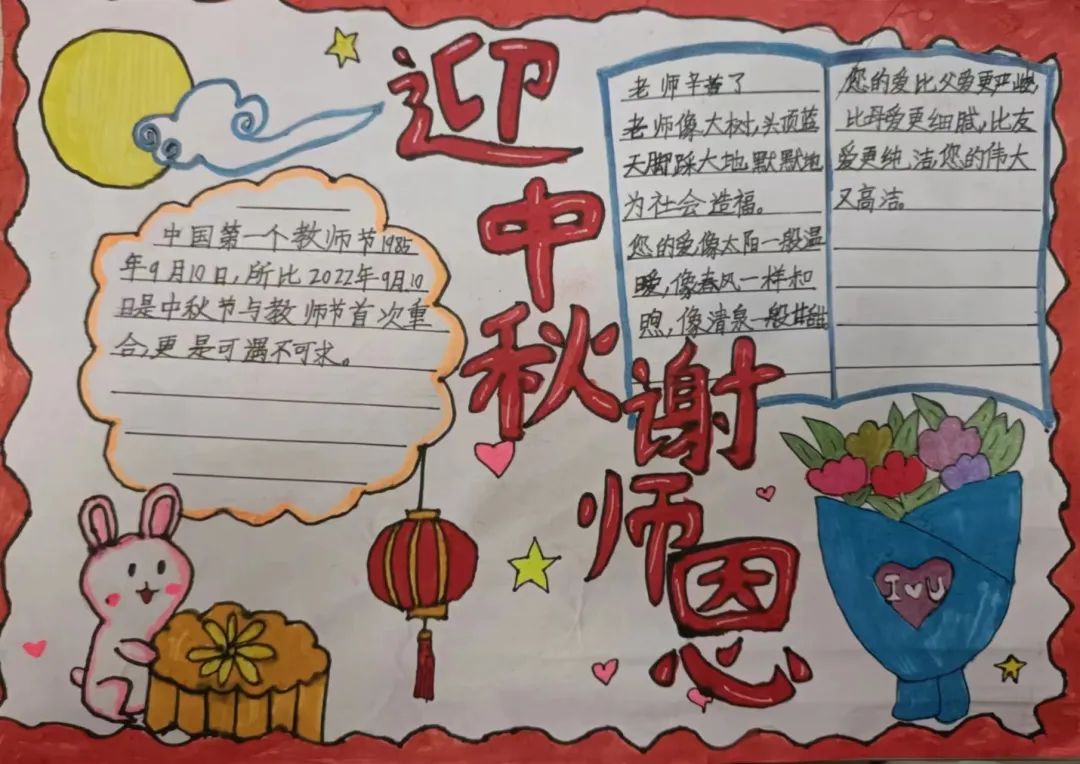 迎中秋
谢师恩
中国第一个教师节1985
年9月10日,所比2022年9月10
日是中秋节与教师节首次重
合,更是可遇不可求。
老师辛苦了
老师像大树,头顶蓝
天脚踩大地默默地
为社会造福。
您的爱,像太阳一般温
暖,像春风一样和
煦,像清泉一般甘甜
您的爱比父爱更严峻,
比母爱更细腻,比友
爱更纯洁,您的伟大
又高洁。
I U